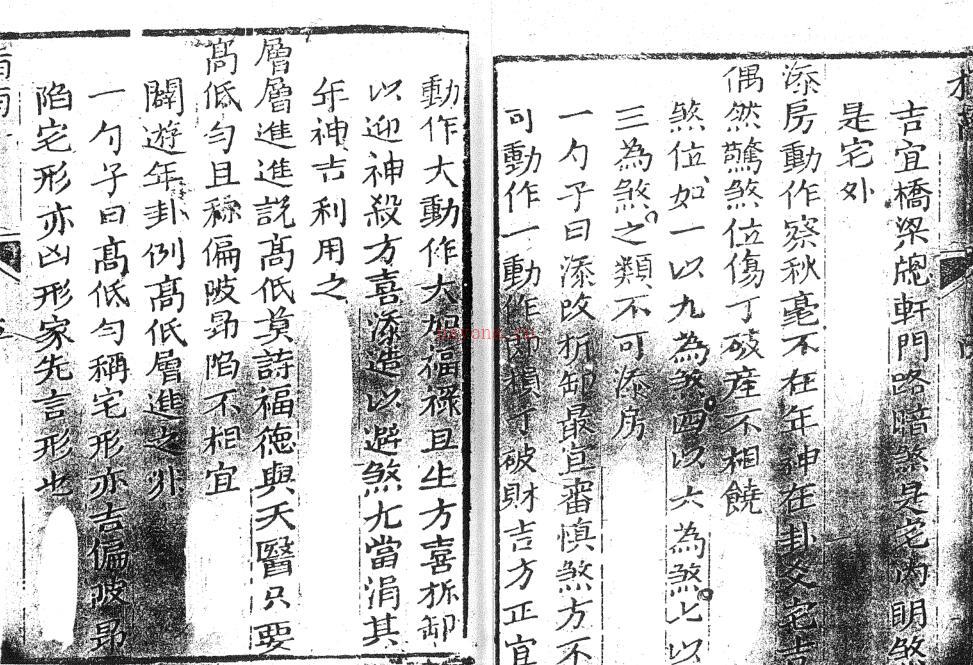 吉宜橋梁牕軒門路暗煞是宅內明煞
是宅外
添房動作察秋毫不在年神在卦爻宅吉
偶然驚煞位傷丁破產不相饒
煞位如一以九為煞四以六為煞七以
三為煞之類不可添房
一勺子曰添改拆卸最宜審慎煞方不
可動作一動作破財吉方正宜
動作大動作大福祿且生方喜拆卸
以迎神殺方喜添造以避煞尤當涓其
年神吉利用之
層層進進説高低莫詩福德與天醫只要
高低勻且稱偏陂昻陷不相宜
闢遊年卦例高低層進之非
一勺子曰高低勻稱宅形亦吉偏陂昻
陷宅形亦凶形家先言形也